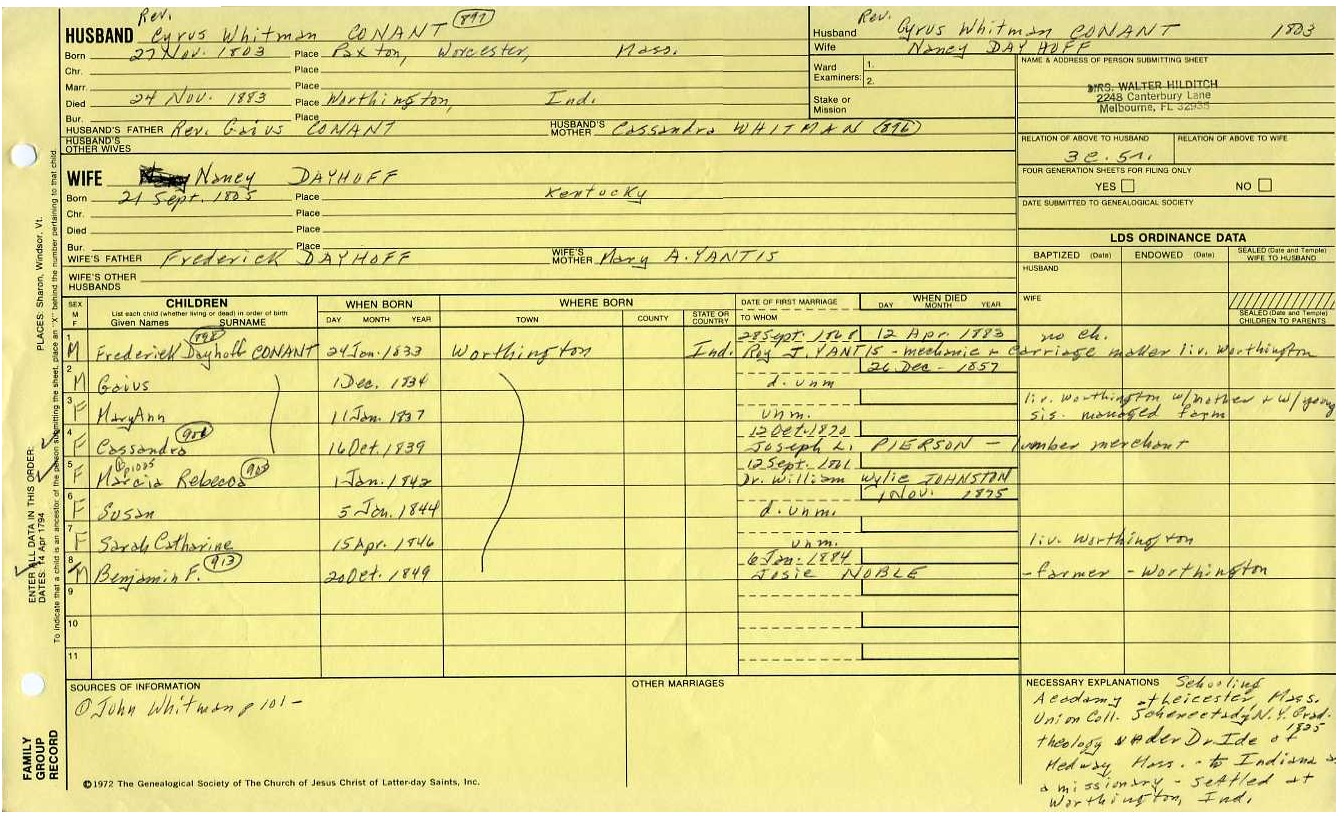 HUSBAND Rev. Cyrus Whitman CONANT (897)
Born 27 Nov. 1803 Place Paxton, Worcester, Mass.
Chr. Place
Marr. Place
Died 24 Nov. 1883 Place Worthington, Ind.
Bur. Place
HUSBAND'S FATHER Rev. Gaius CONANT HUSBAND'S MOTHER Cassandra WHITMAN (896)
HUSBAND'S OTHER WIVES
WIFE Nancy DAYHOFF
Born 21 Sept. 1805 Place Kentucky
Chr. Place
Died Place
Bur. Place
WIFE'S FATHER Frederick DAYHOFF WIFE'S MOTHER Mary A. YANTIS
WIFE'S OTHER HUSBANDS
Husband Rev. Cyrus Whitman CONANT 1803
Wife Nancy DAYHOFF
Ward Examiners: 1.
2.
Stake or Mission
NAME & ADDRESS OF PERSON SUBMITTING SHEET
MRS. WALTER HILDITCH
2248 Canterbury Lane
Melbourne, FL 32935
RELATION OF ABOVE TO HUSBAND RELATION OF ABOVE TO WIFE
3c. 5r.
FOUR GENERATION SHEETS FOR FILING ONLY
YES NO
DATE SUBMITTED TO GENEALOGICAL SOCIETY
LDS ORDINANCE DATA
BAPTIZED (Date) ENDOWED (Date) SEALED (Date and Temple) WIFE TO HUSBAND
HUSBAND
WIFE
SEALED (Date and Temple) CHILDREN TO PARENTS
SEX M F
CHILDREN
List each child (whether living or dead) in order of birth
Given Names SURNAME
WHEN BORN
DAY MONTH YEAR
WHERE BORN
TOWN COUNTY STATE OR COUNTRY
DATE OF FIRST MARRIAGE
TO WHOM
WHEN DIED
DAY MONTH YEAR
1 28 Sept. 1868 12 Apr. 1883 no ch.
M Frederick Dayhoff CONANT (898) 24 Jan. 1833 Worthington Ind. Roy J. YANTIS - mechanic + carriage maker liv. Worthington
2 26 Dec - 1857
M Gaius 1 Dec. 1834 d. unm
3 liv. Worthington w/mother + w/young
F MaryAnn 11 Jan. 1837 unm. sis. managed farm
4 12 Oct. 1870
F Cassandra 16 Oct. 1839 Joseph L. PIERSON - lumber merchant
5 12 Sept. 1861
F Marcia Rebecca 1 Jan. 1842 Dr. William Wylie JOHNSTON
6 1 Nov. 1875
F Susan 5 Jan. 1844 d. unm.
7
F Sarah Catharine 15 Apr. 1846 unm. liv. Worthington
8 6 Jan. 1884
M Benjamin F. (913) 20 Oct. 1849 Josie NOBLE - farmer - Worthington
9
10
11
SOURCES OF INFORMATION
① John Whitman p 101 -
OTHER MARRIAGES
NECESSARY EXPLANATIONS Schooling
Academy at Leicester, Mass.
Union Coll. Schenectady N.Y. Grad. 1825
theology under Dr Ide of
Medway Mass. - to Indiana as
a missionary - settled at
Worthington, Ind.
©1972 The Genealogical Society of The Church of Jesus Christ of Latter-day Saints, Inc.
FAMILY GROUP RECORD
ENTER ALL DATA IN THIS ORDER:
DATES: 14 Apr 1794
PLACES: Sharon, Windsor, Vt.
To indicate that a child is an ancestor of the person submitting the sheet, place an "X" behind the number pertaining to that child.